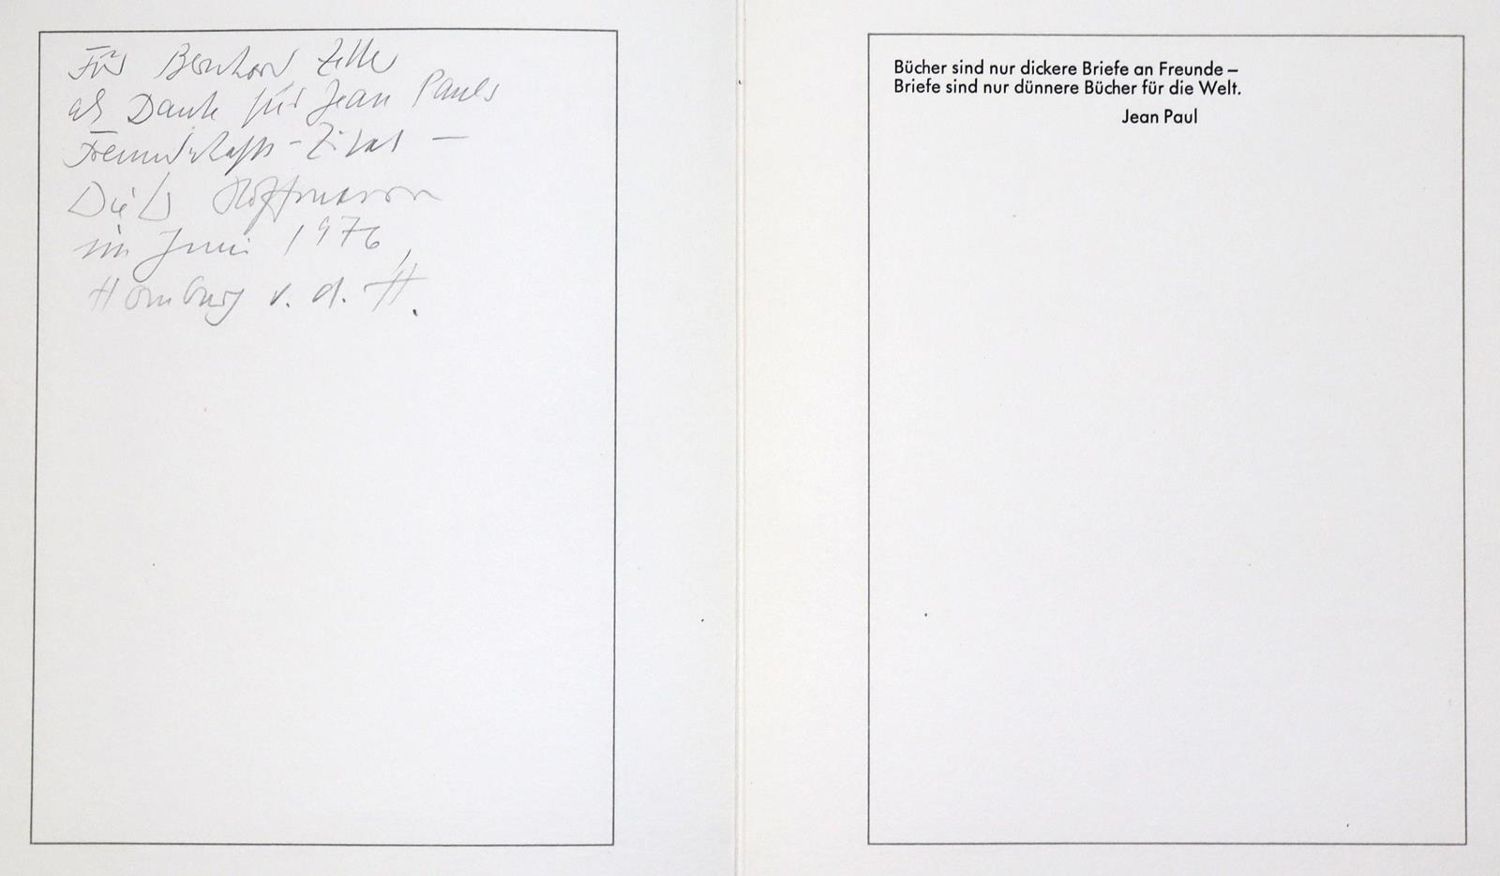 Für Bernhard Zeller
als Dank für Jean Pauls
Freundschafts-Zitat –
Dieter Hoffmann
im Juni 1976,
Homburg v. d. H.
Bücher sind nur dickere Briefe an Freunde –
Briefe sind nur dünnere Bücher für die Welt.
Jean Paul